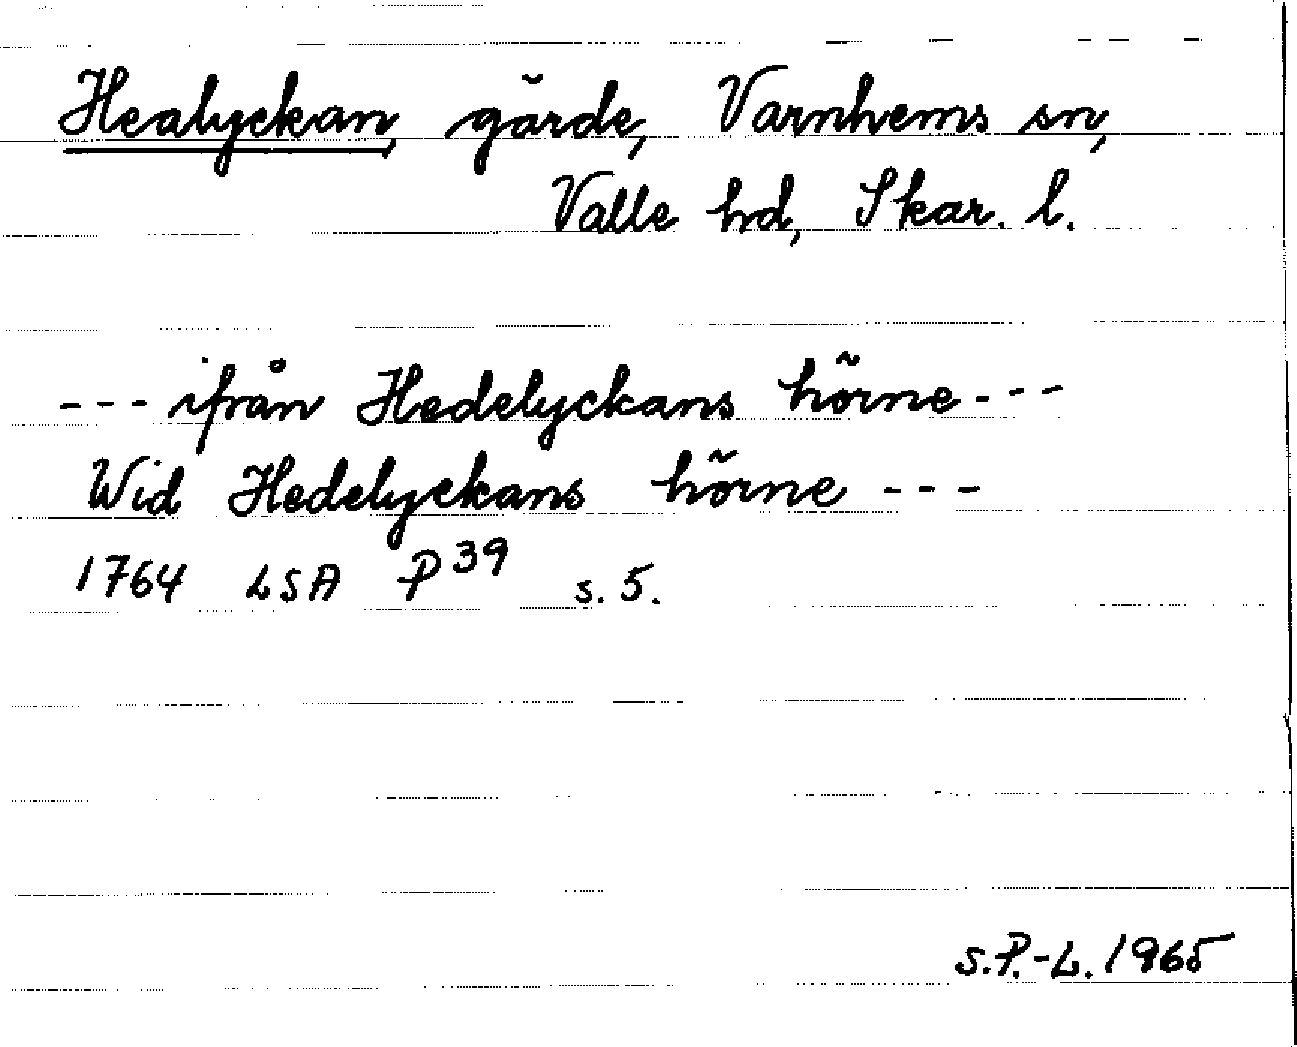 Healyckan, gärde, Varnhems sn,
Valle hd, Skar. l.
--- ifrån Hedelyckans hörne ---
Wid Hedelyckans hörne ---
1764 LSA P 39 s. 5.
S.P.-L. 1965